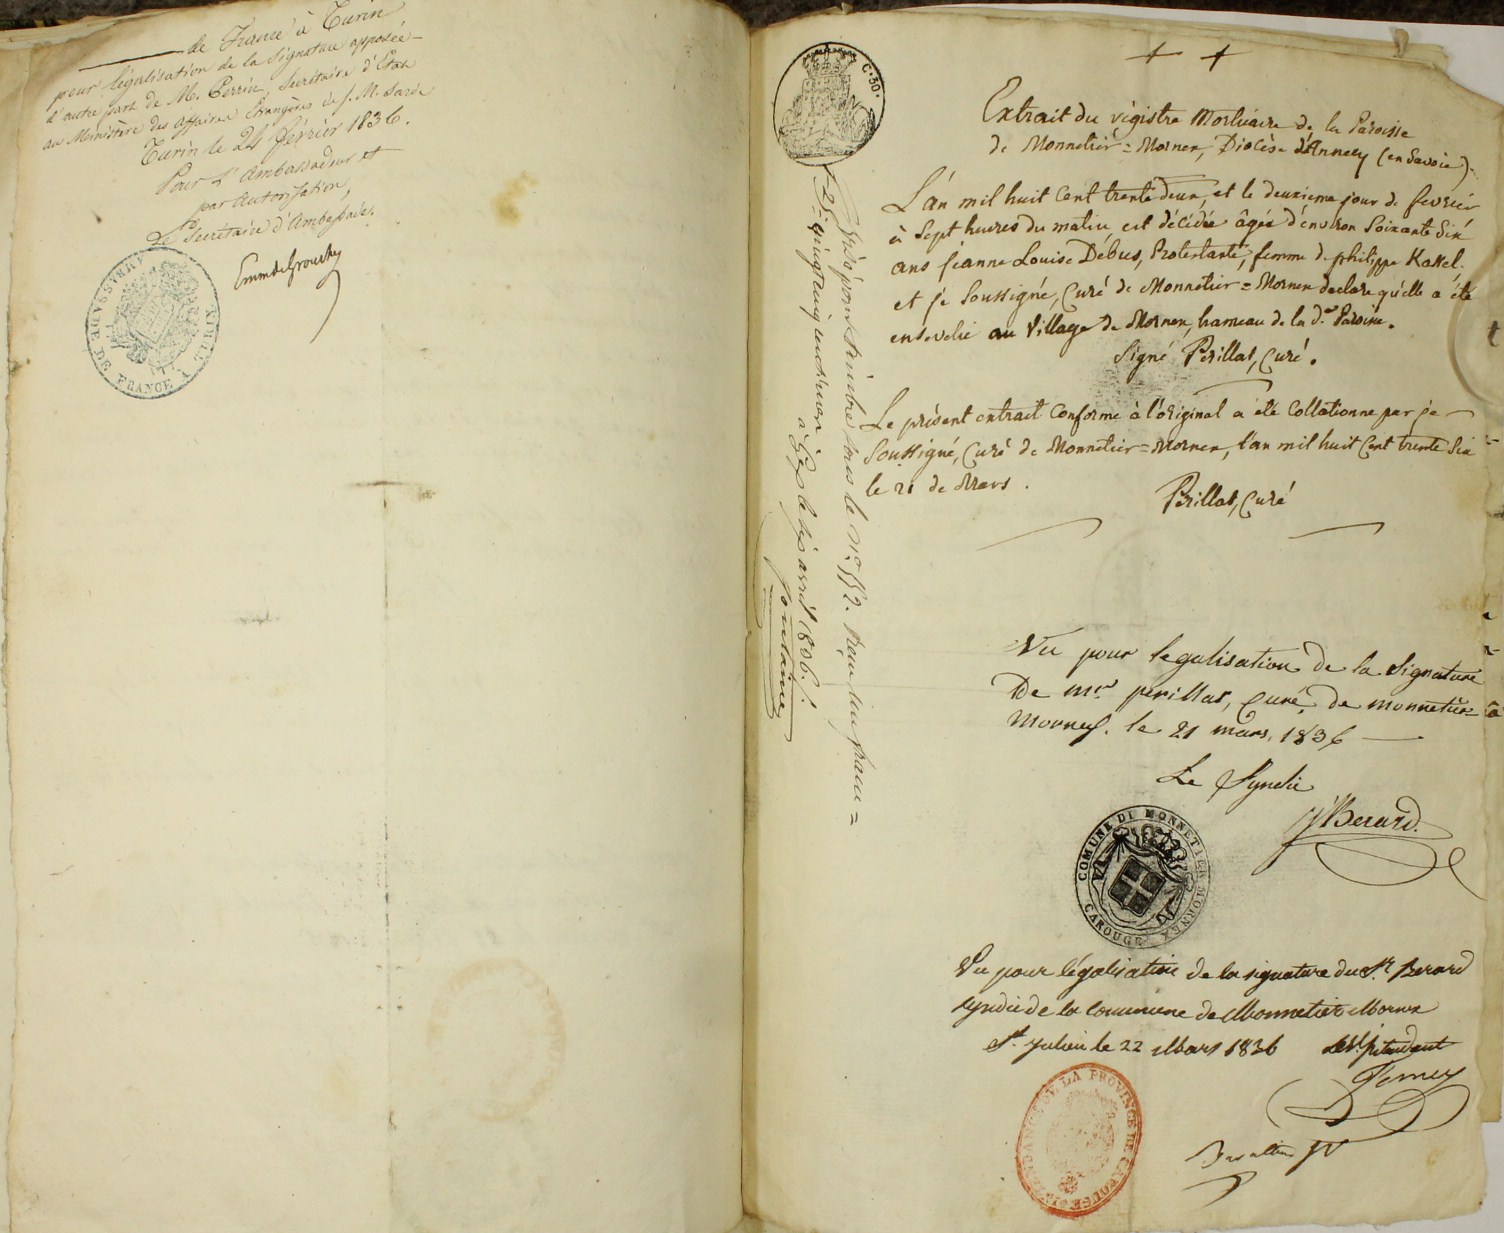 de France à Turin
pour légalisation de la signature apposée
d'autre part de M. Perrin, Secrétaire d'Etat
au Ministère des affaires Etrangères de S. M. Sarde
Turin le 24 février 1836.
Pour l'Ambassadeur et
par Autorisation,
Le Secrétaire d'Ambassade.
Emm de Grouchy
DE FRANCE À TURIN
C. 30.
Extrait du régistre Mortuaire de la Paroisse
de Monnetier=Mornex, Diocèse d'Annecy (en Savoie).
L'an mil huit cent trente deux, et le deuxieme jour de fevrier
à Sept heures du matin, est décédée âgée d'environ Soixante Six
ans jeanne Louise Debus, Protestante, femme de philippe Kassel.
et je Soussigné, Curé de Monnetier=Mornex declare qu'elle a été
ensevelie au Village de Mornex, hameau de la d.e Paroisse.
Signé Perillat, Curé.
Le présent extrait Conforme à l'original a été Collationne par je
Soussigné, Curé de Monnetier=Mornex, l'an mil huit Cent trente Six
le 21 de Mars.
Perillat, Curé
Visé pour timbre sous le n.° 552. Reçu un franc=
à Gex le six avril 1836.
Fontaine
Vu pour legalisation de la Signature
De mr perillat, Curé, de monnetier=
Mornex. le 21 mars, 1836
Le Syndic
J Berard
COMUNE DI MONNETIER MORNEX
CAROUGE
Vu pour légalisation de la signature du Sr. Berard
syndic de la commune de Monnetier Mornex
St. Julien le 22 Mars 1836
INTENDANCE DE LA PROVINCE DE CAROUGE